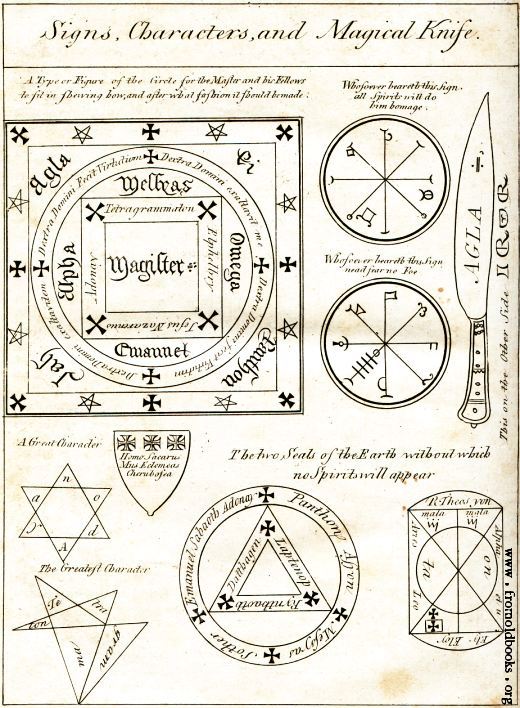 Signs, Characters, and Magical Knife.
A Type or Figure of the Circle for the Master and his Fellows
to sit in shewing how, and after what fashion it should be made:
Whosoever beareth this Sign
all Spirits will do
him homage.
Agla
Dextra Domini Fecit Virtutum
Dextra Domini exaltavit me
Messyas
Tetragrammaton
Alpha
Adonay
Magister
Omega
Jesus Nazarenus
Emanuel
Dextra Domini exaltavit me
Dextra Domini fecit Virtutum
Jah
Panthon
Whosoever beareth this Sign
need fear no Foe
AGLA
This on the Other Side
A Great Character
n
a
o
d
A
Homo Sacarus
Mus Eclomeas
Cherubosca
The two Seals of the Earth without which
no Spirits will appear
Emanuel Sabaoth Adonay
Panthon
Messyas
Sother
The Greatest Character
Te
tra
gram
ma
ton
mala
mala
Alpha
on
ta
Ely Eloy
www.fromoldbooks.org